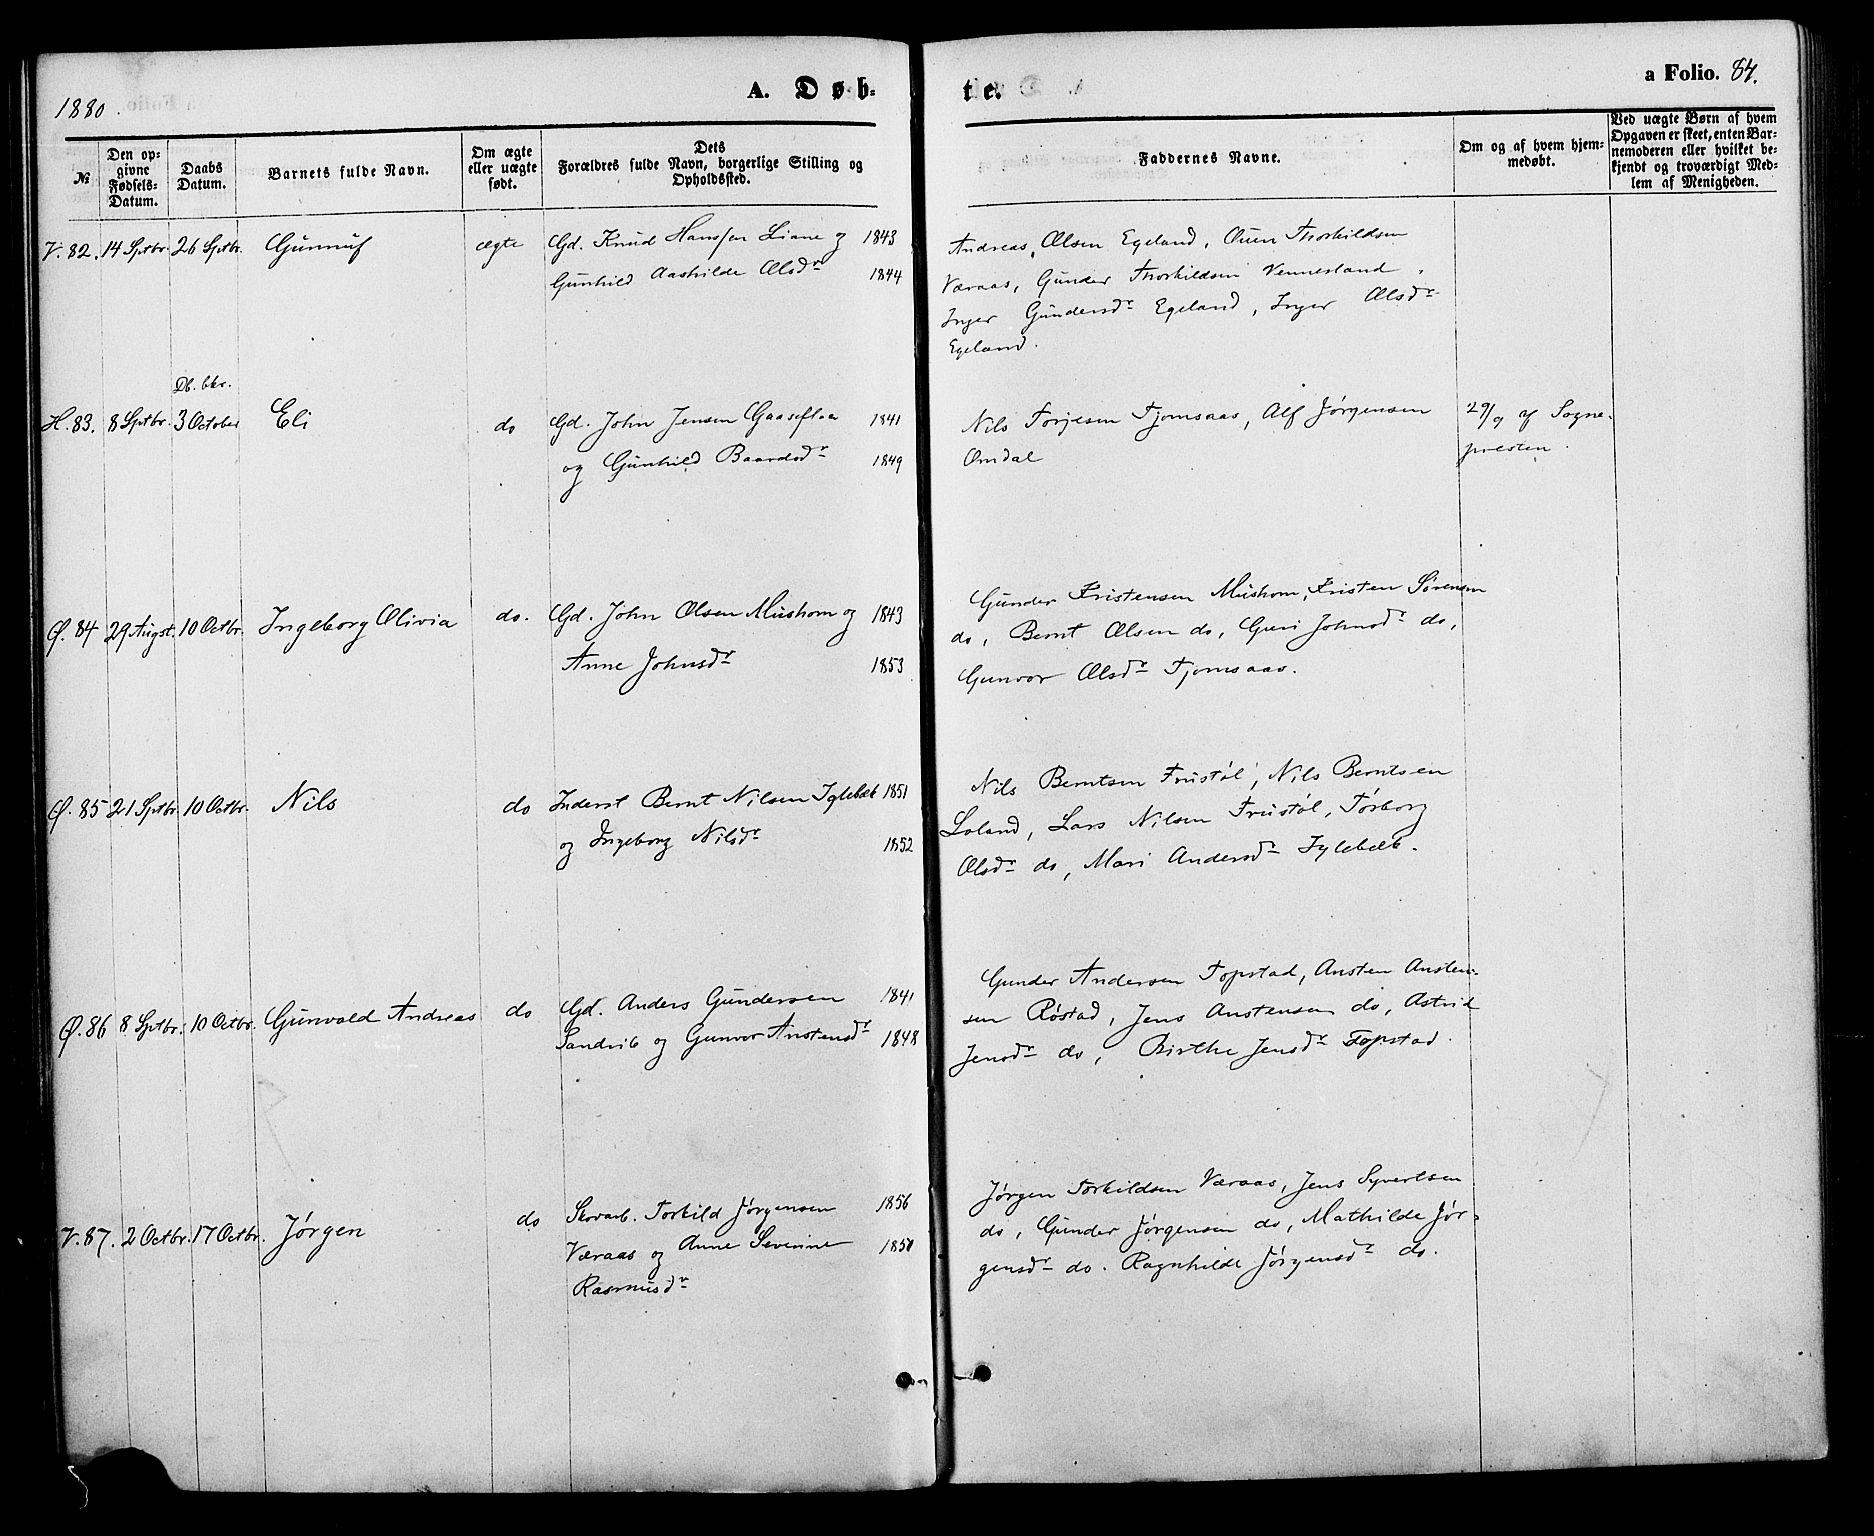 1880.
A. Døb-
te.
a Folio. 84.
№
Den op-
givne
Fødsels-
Datum.
Daabs
Datum.
Barnets fulde Navn.
Om ægte
eller uægte
født.
Dets
Forældres fulde Navn, borgerlige Stilling og
Opholdssted.
Faddernes Navne.
Om og af hvem hjem-
medøbt.
Ved uægte Børn af hvem
Opgaven er skeet, enten Bar-
nemoderen eller hvilket be-
kjendt og troværdigt Med-
lem af Menigheden.
V. 82. 14 Sptbr. 26 Sptbr. Gunnuf ægte Gd. Knud Hanssen Liane og 1843
Gunhild Aashilde Olsdr 1844
Andreas Olsen Egeland, Ouen Thorkildsen
Væraas, Gunder Thorkildsen Vennesland,
Inger Gundersdr Egeland, Inger Olsdr
Egeland.
Db. bkr.
H. 83. 8 Sptbr. 3 October Eli do Gd. John Jensen Gaaseflaa 1841
og Gunhild Baardsdr 1849
Nils Torjesen Tjomsaas, Alf Jørgensen
Omdal
29/9 af Sogne-
presten.
Ø. 84 29 Augst. 10 Octbr. Ingeborg Olivia do. Gd. John Olsen Mushom og 1843
Anne Johnsdr 1853
Gunder Kristensen Mushom, Kristen Sørensen
do, Bernt Olsen do, Guri Johnsdr do,
Gunvor Olsdr Tjomsaas.
Ø. 85 21 Sptbr. 10 Octbr. Nils do Inderst Bernt Nilsen Iglebæk 1851
og Ingeborg Nilsdr 1852
Nils Berntsen Frustøl, Nils Berntsen
Loland, Lars Nilsen Frustøl, Tørborg
Olsdr do, Mari Andersdr Iglebæk.
Ø. 86 8 Sptbr. 10 Octbr. Gunvald Andreas do Gd. Anders Gundersen 1841
Sandrib og Gunvor Anstensdr 1848
Gunder Andersen Topstad, Ansten Ansten-
sen Røstad, Jens Anstensen do, Astrid
Jensdr do, Birthe Jensdr Topstad.
V. 87. 2 Octbr. 17 Octbr. Jørgen do Skovarb. Torkild Jørgensen 1856
Væraas og Anne Severine
Rasmusdr
Jørgen Torkildsen Væraas, Jens Syvertsen
do, Gunder Jørgensen do, Mathilde Jør-
gensdr do. Ragnhilde Jørgensdr do.